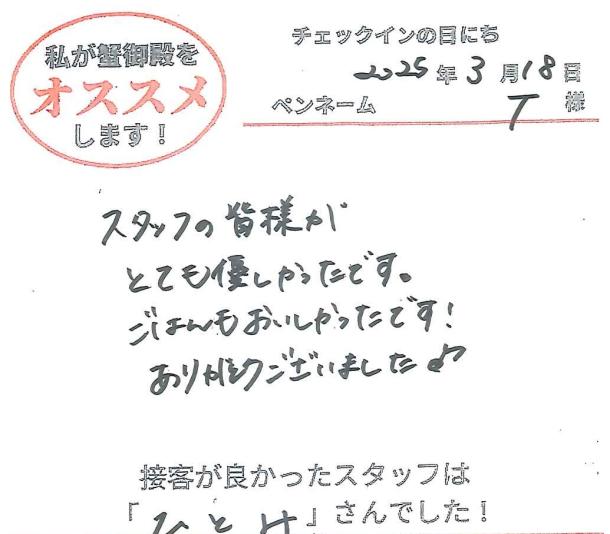 私が蟹御殿を
オススメ
します！
チェックインの日にち
2025年3月18日
ペンネーム T 様
スタッフの皆様が
とても優しかったです。
ごはんもおいしかったです！
ありがとうございました♪
接客が良かったスタッフは
「ひとみ」さんでした！